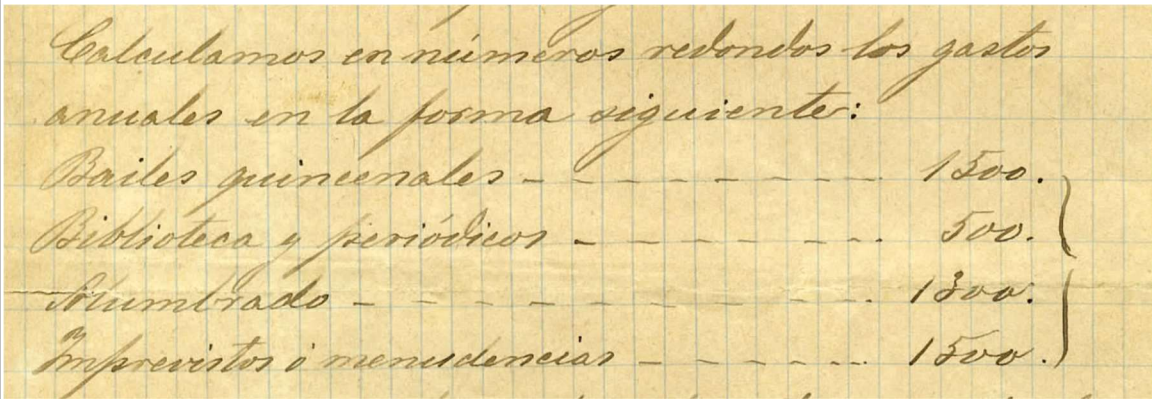 Calculamos en números redondos los gastos
anuales en la forma siguiente:
Bailes quincenales - - - - - - - - - 1500.
Biblioteca y periódicos - - - - - - - 500.
Alumbrado - - - - - - - - - - - - 1300.
Imprevistos ó menudencias - - - - - - 1500.